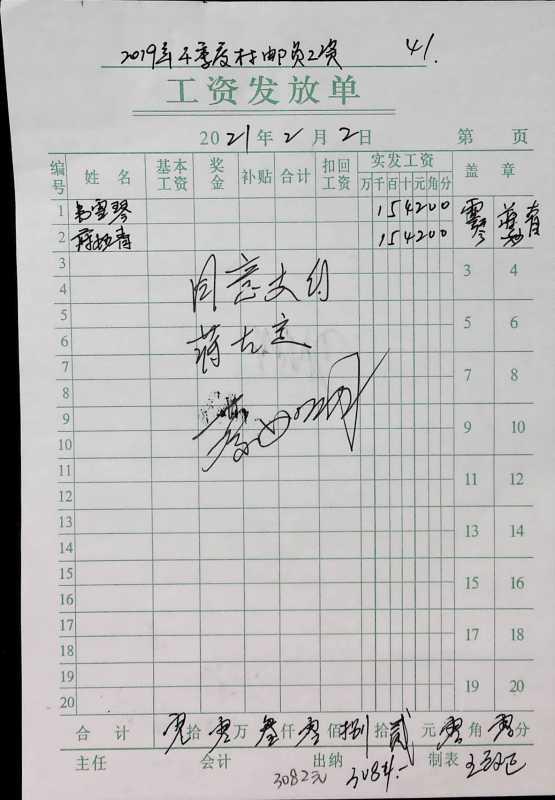 2019年4季度村邮员工资 41.
工资发放单
2021年2月2日 第 页
编号 姓名 基本工资 奖金 补贴 合计 扣回工资 实发工资 盖章
万 千 百 十 元 角 分
1 韦雪琴 1 5 4 2 0 0
2 1 5 4 2 0 0
3 3 4
同意支付
4
5 5 6
6
7 7 8
8
9 9 10
10
11 11 12
12
13 13 14
14
15 15 16
16
17 17 18
18
19 19 20
20
合计 零拾零万叁仟零佰捌拾贰元零角零分
主任 会计 出纳 制表
3082元 3084.-